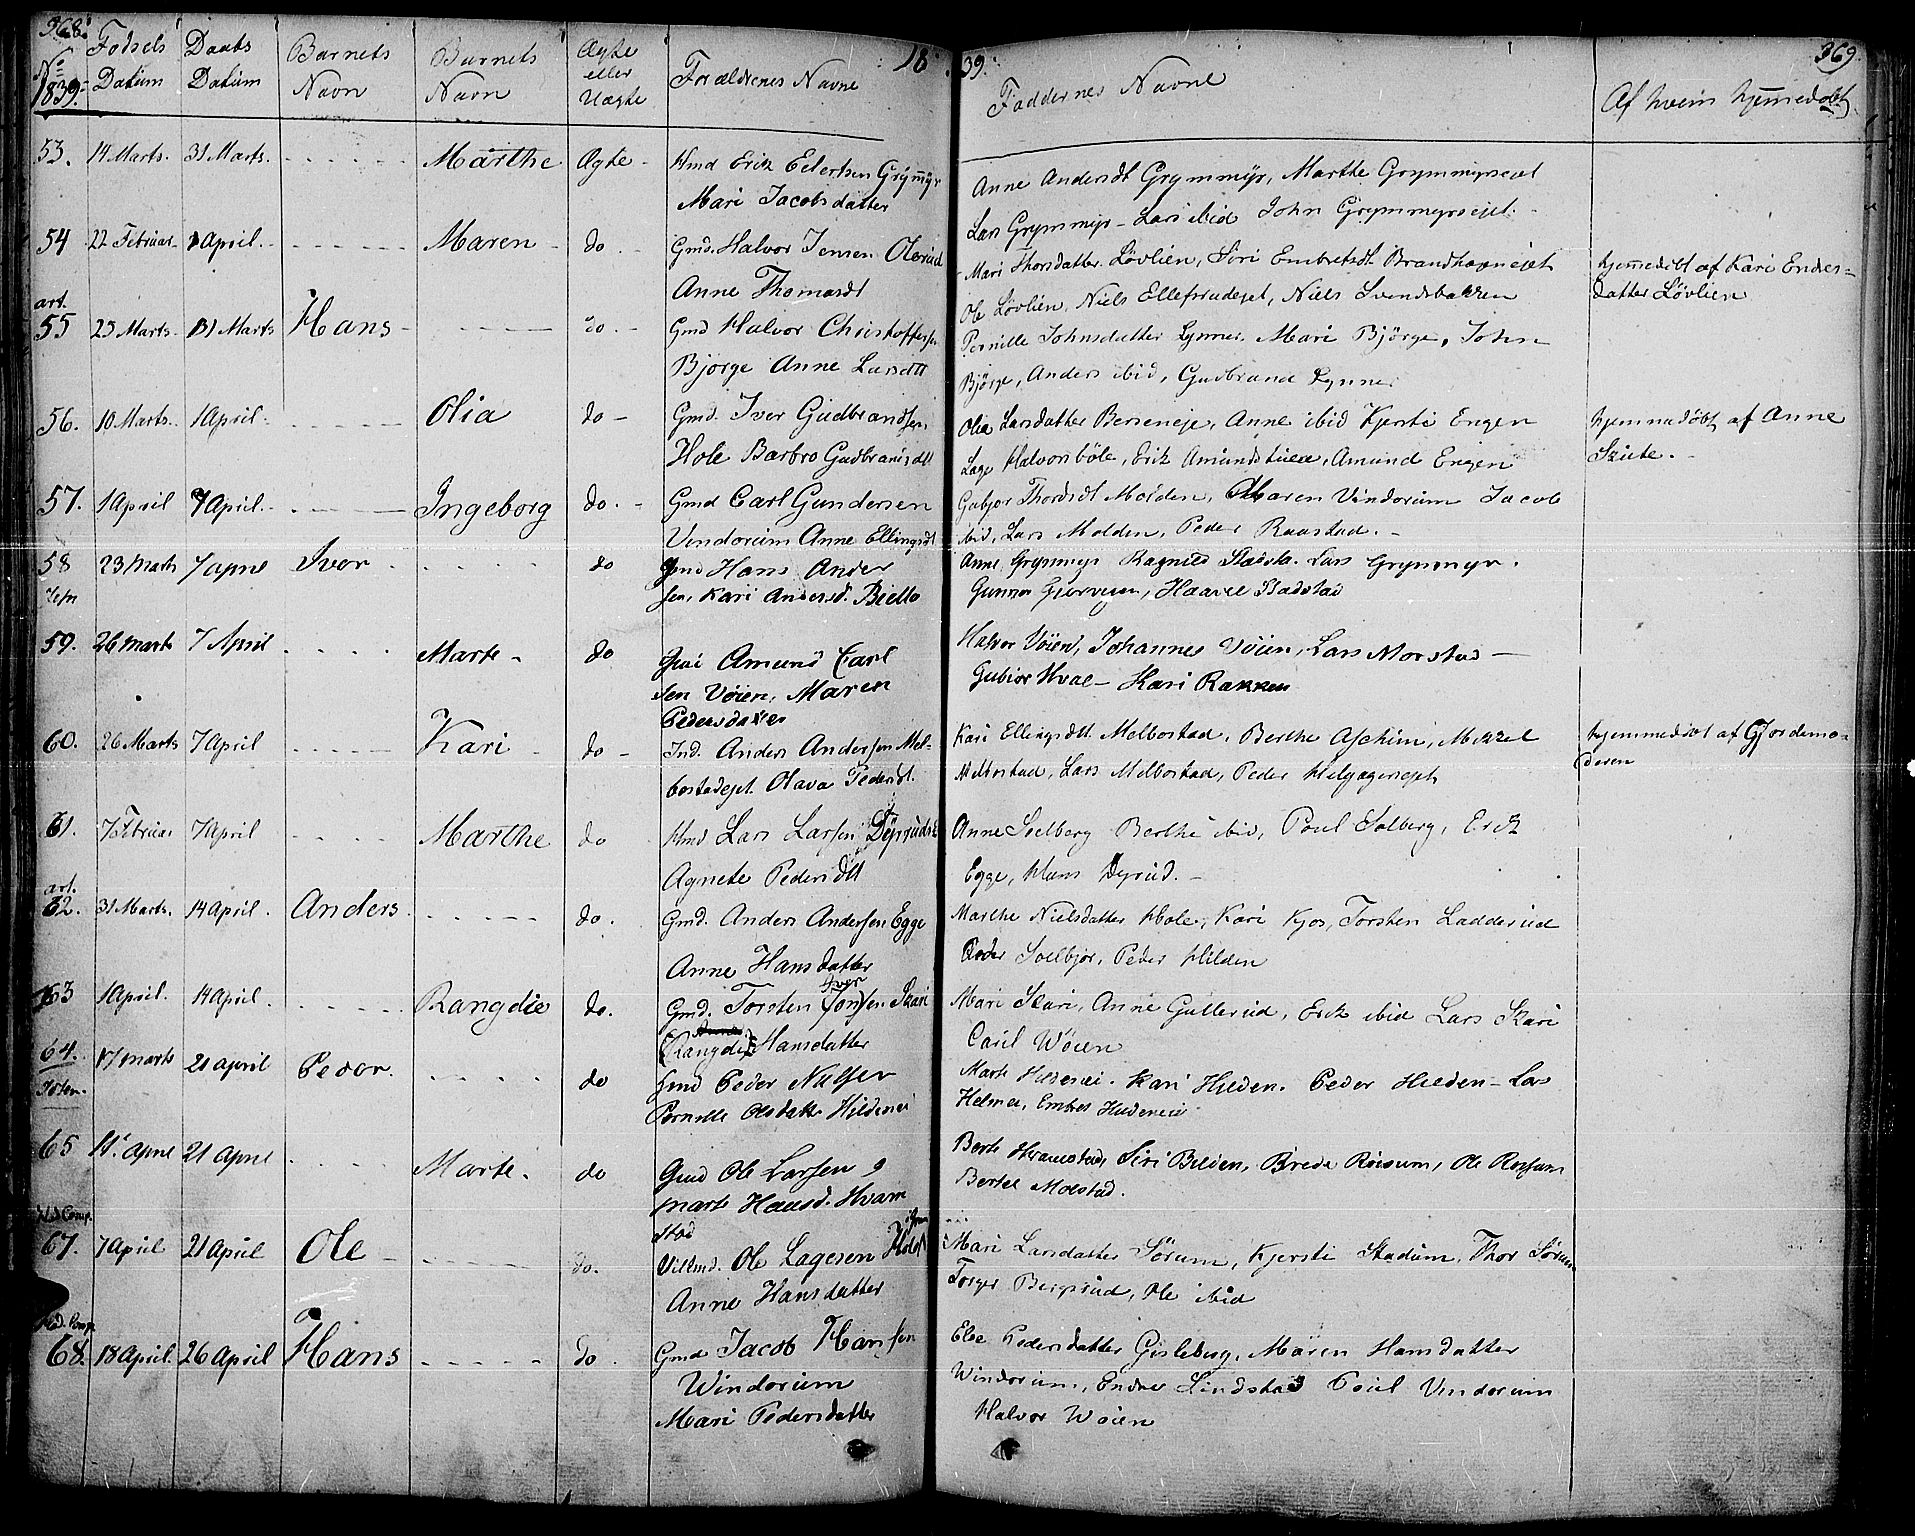 368.
18
39.
369.
No 1839.
Fødsels Datum
Daabs Datum
Barnets Navn
Barnets Navn
Ægte eller Uægte
Forældrenes Navne
Faddernes Navne
Af hvem hjemmedøbt
53. 14 Marts. 31 Marts. Marthe Ægte Hmd Erik Eilertsen Grymyr
Mari Jacobsdatter
Anne Andersdt Grymmyr, Marthe Grymmyrseiet
Lars Grymmyr - Lars ibid John Grymmyrseiet.
54 22 Februar 1 April. Maren do. Gmd. Halvor Jensen Olerud
Anne Thomasdt
Mari Thorsdatter Løvlien, Siri Embretsdt Brandhagneiet
Ole Løvlien, Niels Ellefsrudejet, Niels Svendsbakken
hjemmedøbt af Kari Enders-
datter Løvlien
art.
55 25 Marts 31 Marts Hans do. Gmd Halvor Christoffersen
Bjørge Anne Larsdtt
Pernille Johnsdatter Lynner. Mari Bjørge, John
Bjørge, Anders ibid, Gudbrand Lynner
56. 10 Marts. 1 April. Olia do Gmd. Iver Gudbrandsen
Hole Barbro Gudbrandsdtt
Olia Larsdatter Berseneje, Anne ibid Kjersti Engen
Lage Halvorsbøle, Erik Amundstuen, Amund Engen
hjemmedøbt af Anne
Skute.
57. 1 April 7 April. Ingeborg do. Gmd Carl Gundersen
Vindorum Anne Ellingsdt
Gubjør Thordsdt Molden, Maren Vindorum Jacob
ibid, Lars Molden, Peder Raastad.
58 23 Marts 7 April Iver do Gmd Hans Ander
sen, Kari Andersd. Bielto
Anne Grymmyr Ragnild Lars Grymmyr.
Gunner Haavel
59. 26 Marts 7 April Marte do Gmd Amund Carl
sen Vøien, Maren
Pedersdatter
Halvor Vøien, Johannes Vøien, Lars Morstad
Gubiør Hval - Kari Rakken
60. 26 Marts 7 April Kari do Ind. Anders Andersen Mel-
bostadejet. Olava Pedersdt.
Kari Ellingsdtt Melbostad, Berthe Aschim, Mikkel
Melbostad, Lars Melbostad, Peder Helgagerejet
hjemmedøbt af Gjordemo-
deren
61. 7 Februar 7 April Marthe do Hmd Lars Larsen Dyrruds
Agnete Pedersdtt
Anne Solberg Berthe ibid, Poul Solberg, Erik
Egge, Hans Dyrud.
art.
62. 31 Marts. 14 April. Anders do. Gmd. Anders Andersen Egge
Anne Hansdatter
Marthe Nielsdatter Hole, Kari Kjos, Torsten Ladderud
Peder Solbjør, Peder Hilden
63 1 April. 14 April. Rangdie do. Gmd. Torsten Iversen Skari
Rangdi Hansdatter
Mari Skari, Anne Gullerud, Erik ibid Lars Skari
Carl Wøien
64. 17 Marts 21 April Peder. do Gmd Peder Nilsen
Pernille Olsdatter Hildenei
Marte Hildenei. Kari Hilden. Peder Hilden - Lars
Helmei, Embret Hildeneie
65 14 April 21 April Marte. do Gmd Ole Larsen og
Marte Hansd. Hvam
stad
Berte Hvamstad, Siri Bilden, Brede Røisum, Ole Røisum
Bertel Molstad.
67. 7 April 21 April Ole do. Ole Lagesen
Anne Hansdatter
Mari Larsdatter Sørum, Kjersti Stadum, Thor Sørum
Torger Bergsrud, Ole ibid
68. 18 April. 26 April Hans do. Gmd Jacob Hansen
Windorum
Mari Pedersdatter
Else Pedersdatter Gisleberg, Maren Hansdatter
Windorum, Endre Lindstad Poul Vindorum
Halvor Wøien